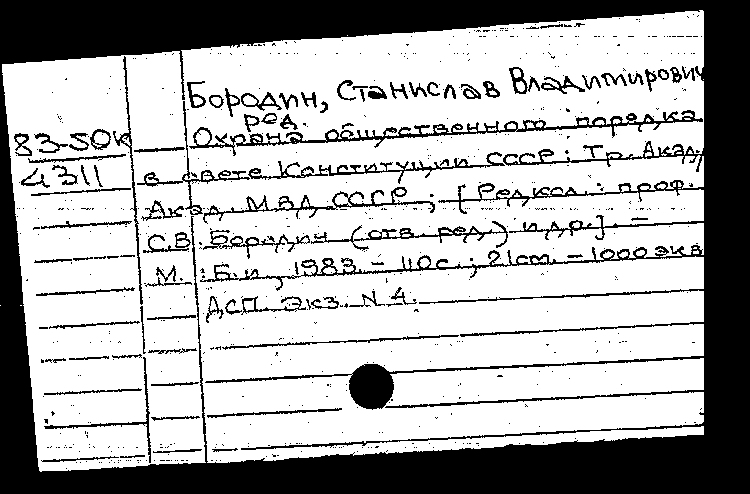 Бородин, Станислав Владимирович
ред.
83-50к Охрана общественного порядка
4311 в свете Конституции СССР : Тр. Акад./
Акад. МВД СССР ; [Редкол. : проф.
С.В. Бородин (отв. ред.) и др.]. –
М. : Б.и., 1983. – 110с. ; 21см. – 1000 экз
ДСП. Экз. N 4.